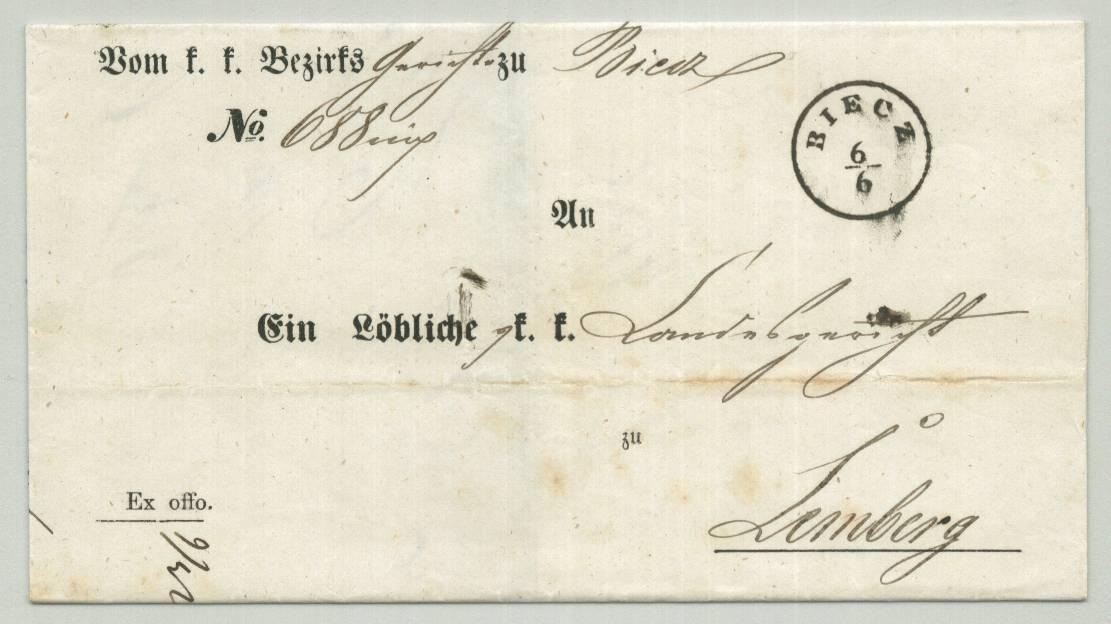 Vom k. k. Bezirks Gerichte zu Biecz
No. 688
BIECZ
6/6
An
Ein Löbliche k. k. Landesgericht
zu
Lemberg
Ex offo.